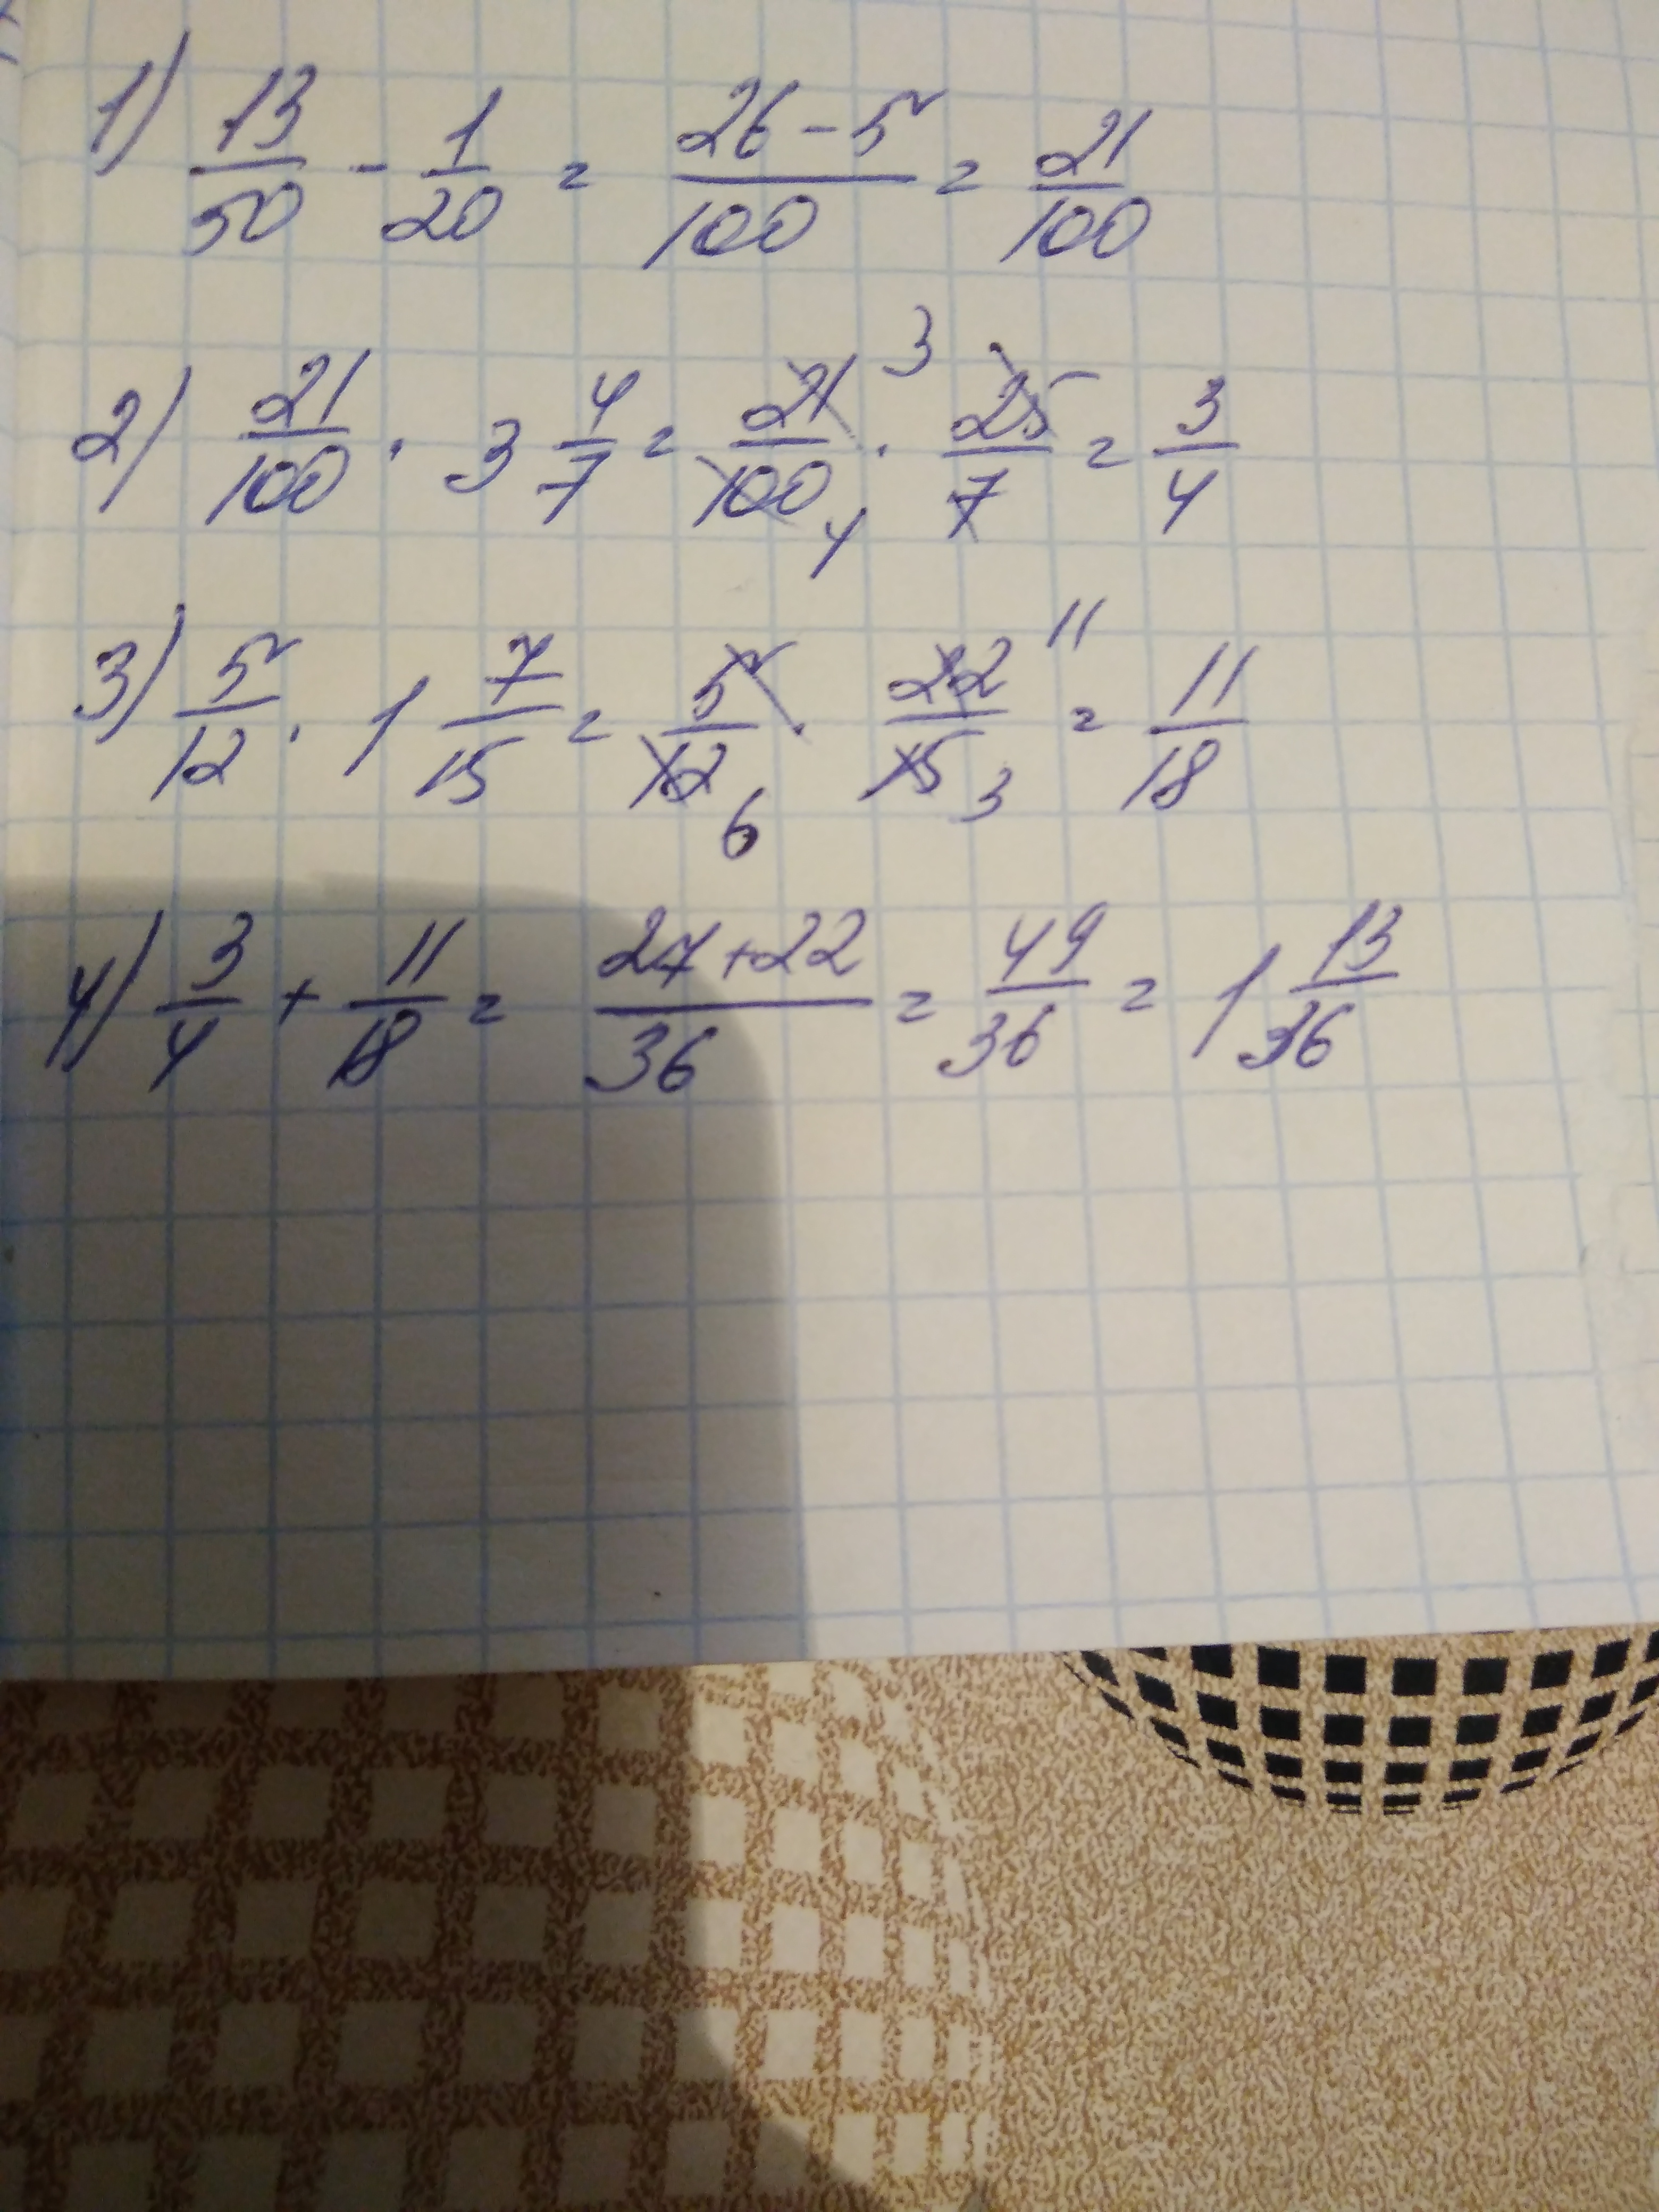 1) 13/50 - 1/20 = (26-5)/100 = 21/100
2) 21/100 · 3 4/7 = 21/100 3 4 · 25/7 = 3/4
3) 5/12 · 1 7/15 = 5/12 6 · 22/15 11 3 = 11/18
4) 3/4 + 11/18 = (27+22)/36 = 49/36 = 1 13/36